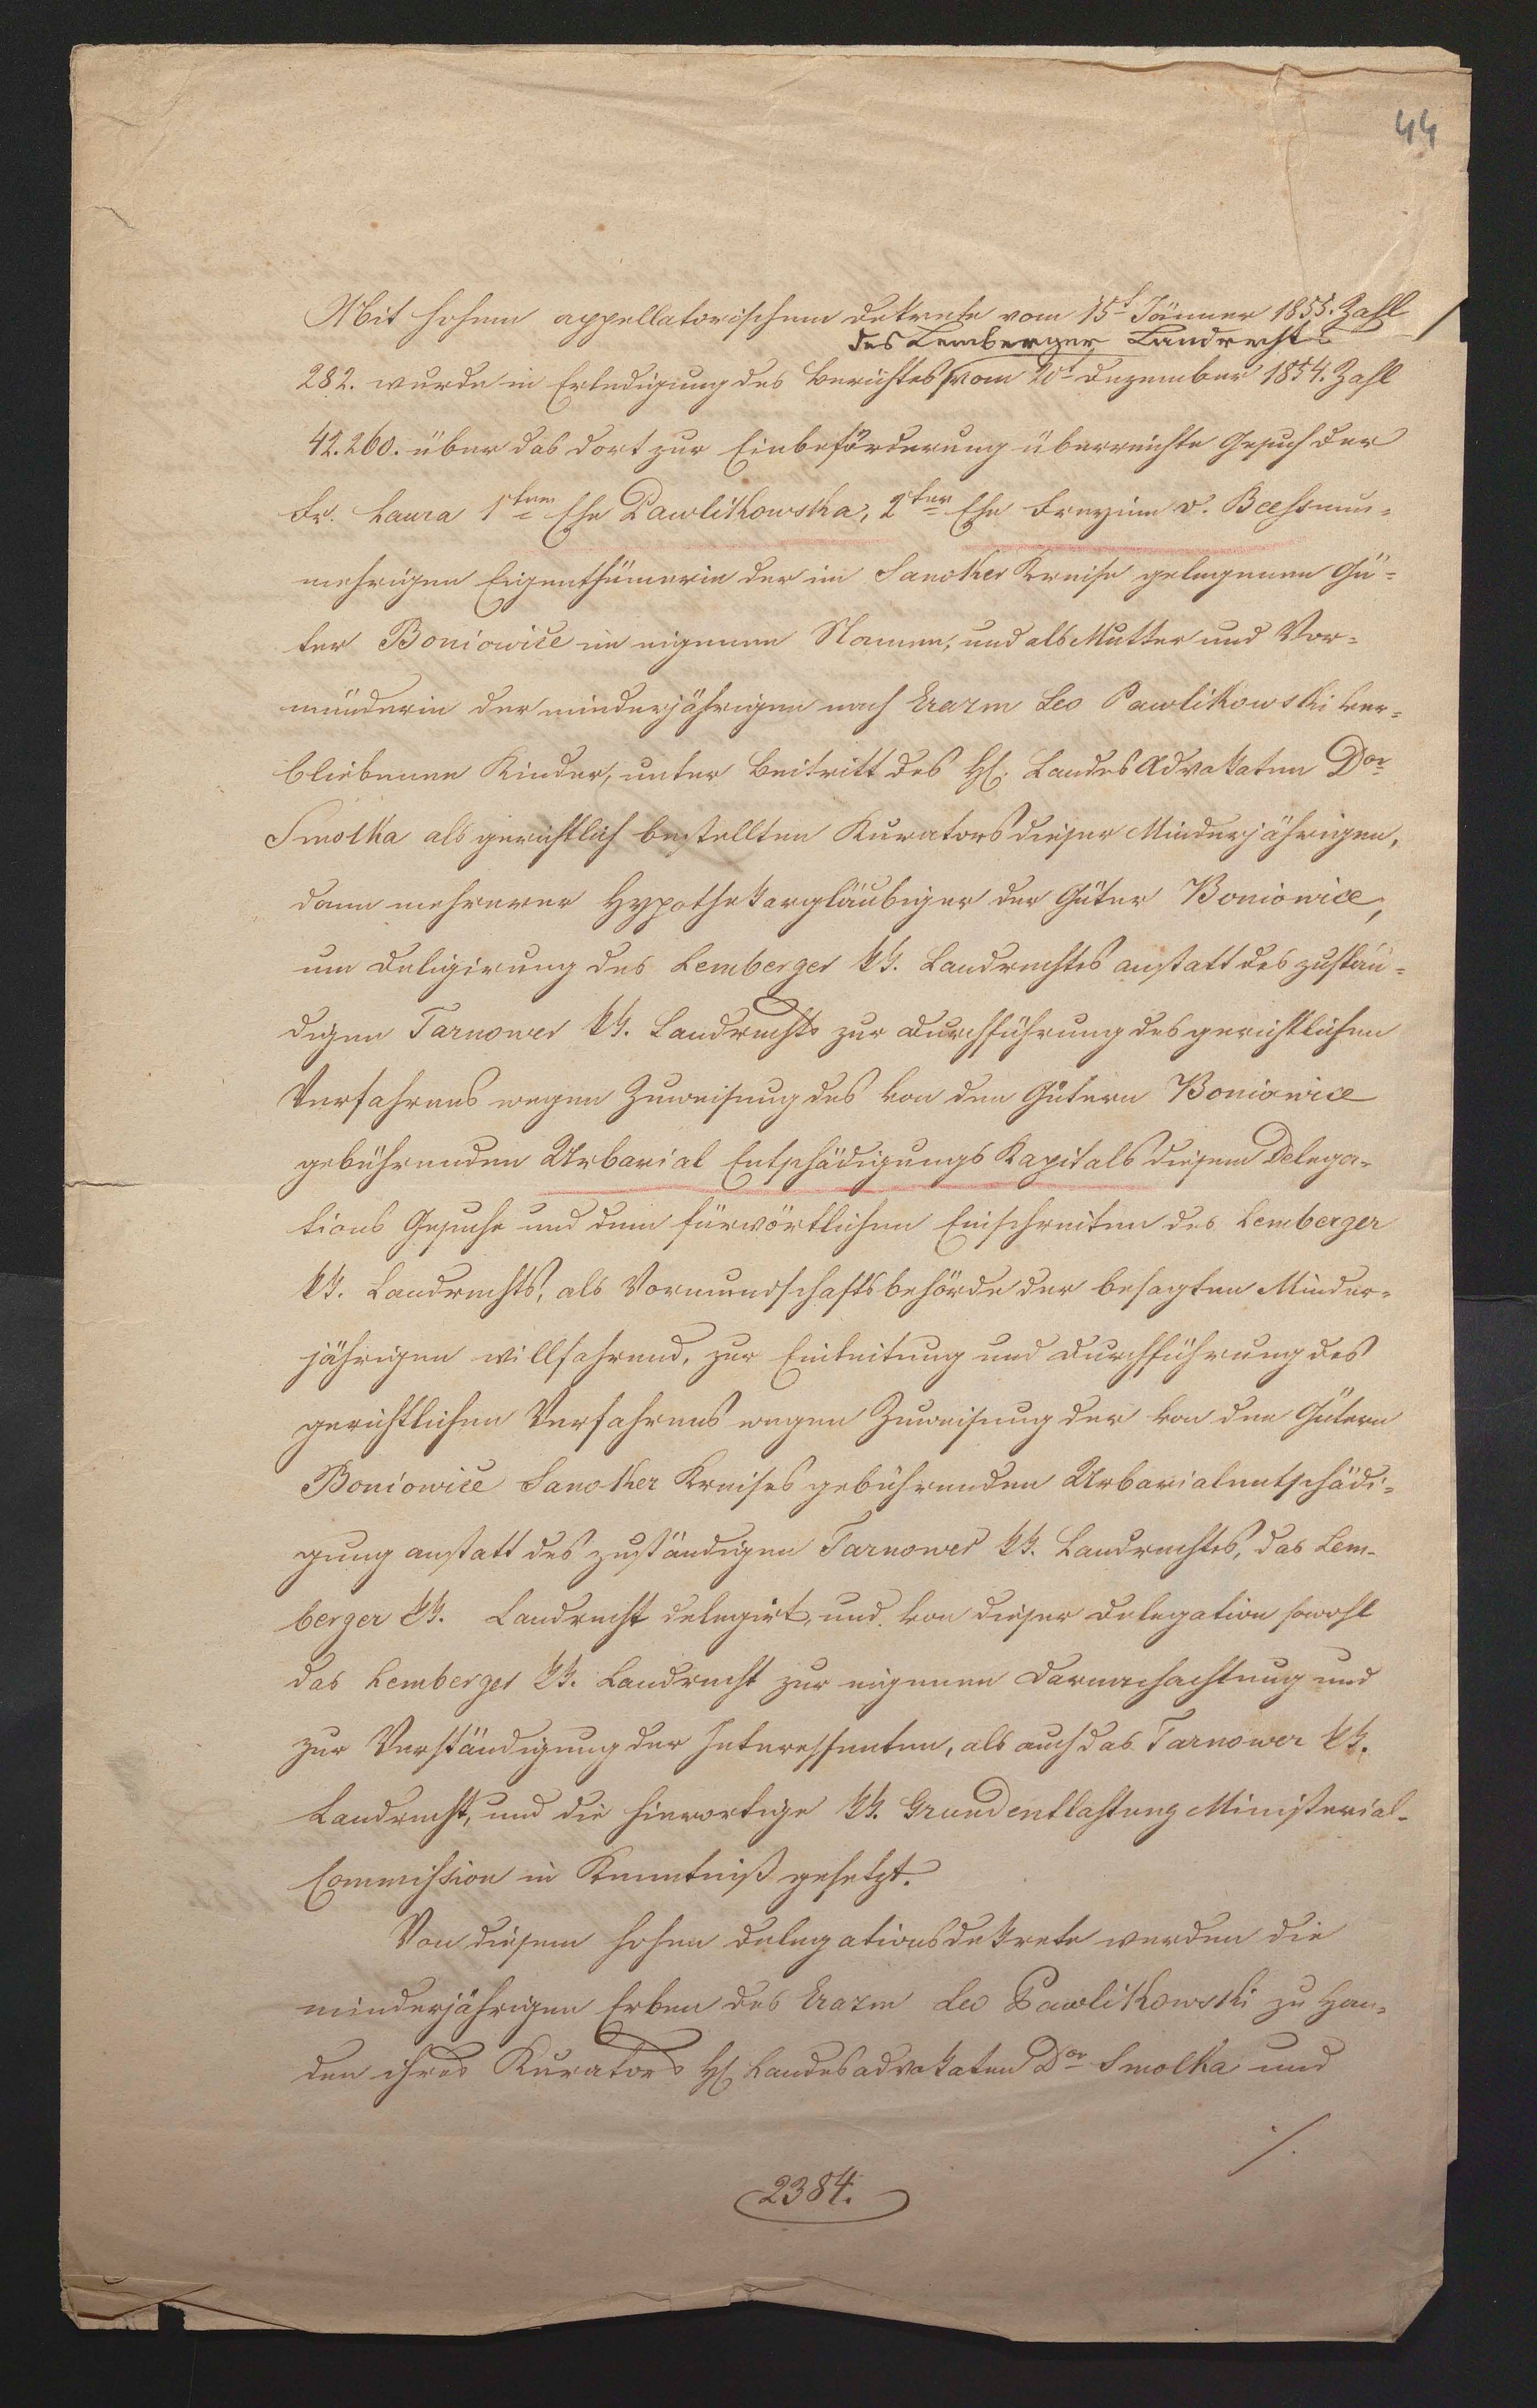 44
Mit hohem appellatorischem Dekrete vom 15t Jänner 1855. Zahl
des Lemberger Landrechts
282. wurde in Erledigung des Berichtes vom 20t Dezember 1854. Zahl
42.260. über das dort zur Einbeförderung überreichte Gesuch der
Fr. Laura 1ten Ehe Pawlikowska, 2ter Ehe Freyinn v. Beess nun=
mehrigen Eigenthümerin der im Sanoker Kreise gelegenen Gü=
ter Boniowice im eigenen Namen, und als Mutter und Vor=
münderin der minderjährigen nach Erazm Leo Pawlikowski ver=
bliebenen Kinder, unter Beitritt des H. Landes Advokaten Dor
Smolka als gerichtlich bestellten Kurators dieser Minderjährigen,
dann mehrerer Hypothekargläubiger der Güter Boniowice,
um Deligirung des Lemberger kk. Landrechtes anstatt des zustän=
digen Tarnower kk. Landrechts zur Durchführung des gerichtlichen
Verfahrens wegen Zuweisung des von den Gütern Boniowice
gebührenden Urbarial Entschädigungs Kapitals diesem Delega=
tions Gesuche und dem fürwörtlichen Einschreiten des Lemberger
kk. Landrechts, als Vormundschaftsbehörde der besagten Minder=
jährigen willfahrend, zur Einleitung und Durchführung des
gerichtlichen Verfahrens wegen Zuweisung der von den Gütern
Boniowice Sanoker Kreises gebührenden Urbarialentschädi=
gung anstatt des zuständigen Tarnower kk. Landrechtes, das Lem=
berger kk. Landrecht delegirt, und von dieser Delegation sowohl
das Lemberger kk. Landrecht zur eigenen Darnachachtung und
zur Verständigung der Interessenten, als auch das Tarnower kk.
Landrecht, und die hierortige kk. Grundentlastung Ministerial=
Commission in Kenntniß gesetzt.
Von diesem hohen Delegationsdekrete werden die
minderjährigen Erben des Erazm Leo Pawlikowski zu Han=
den ihres Kurators H Landesadvokaten Dor Smolka und
./.
2384.